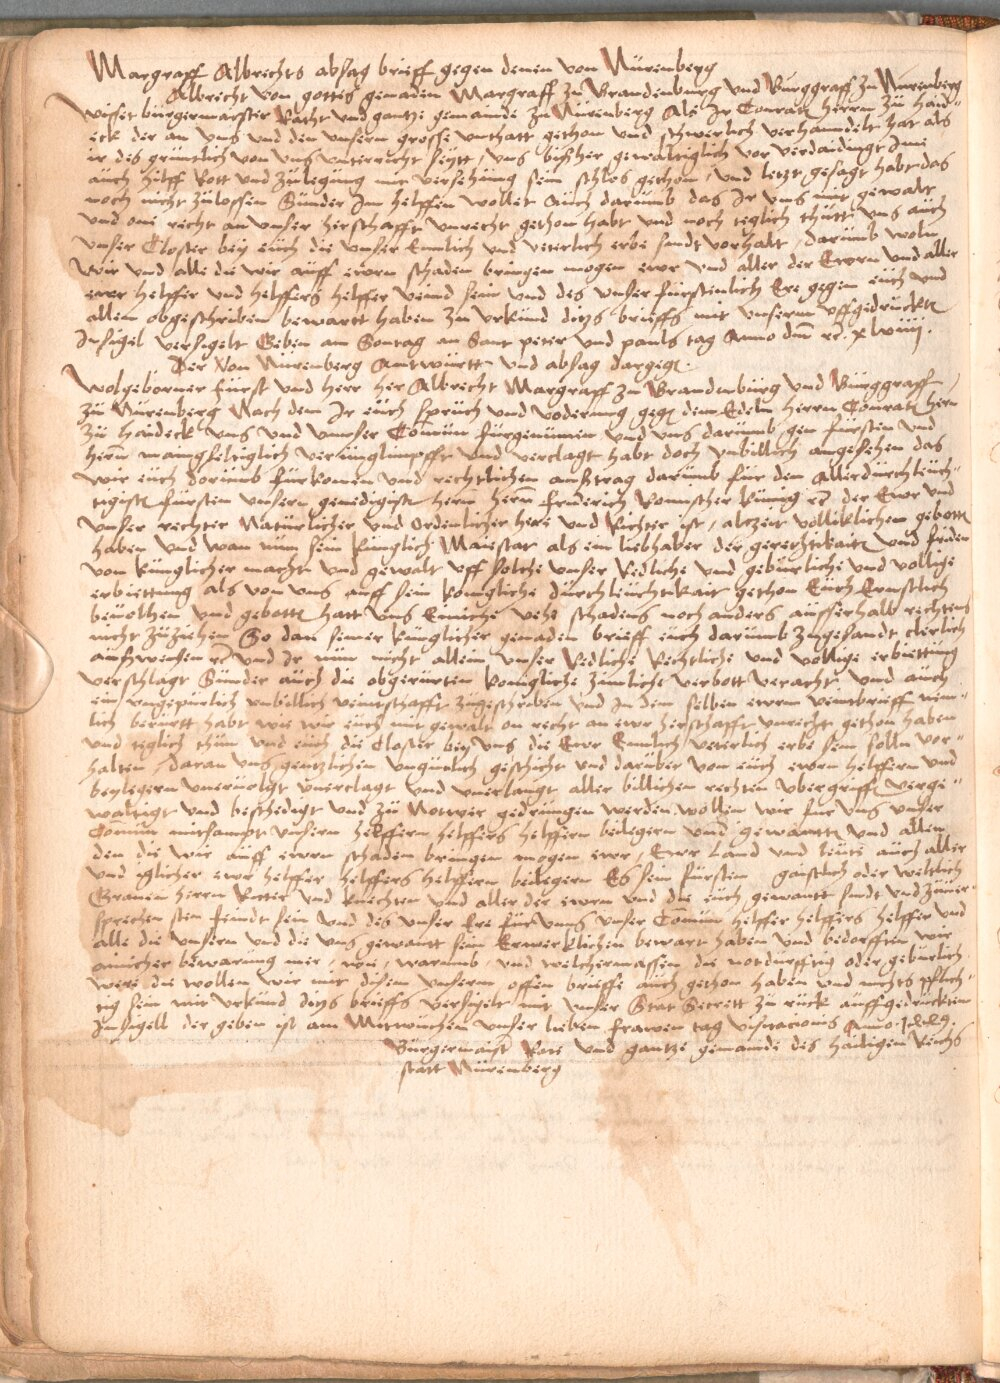 Margraff Albrechts absag brieff gegen denen von Nürenberg
Albrecht von gottes genaden Margraff zu Brandenburg und Burggraff zu Nurenberg
wisset bürgermaister Racht und gantze gemainde zu Nürenberg Als Ir Conratn̄ herrn zu haid-
eck der an uns und den unsern grosse unthatt gethon und schwerlich verhanndelt hat als
ir des grüntlich von uns unterricht seytt, uns bißher gewaltiglich vor verdaidingt Ime
auch hilff Rott und zulegung mit versehung sein schlos gethon, und letzt gesagt habt das
noch nicht zulossen Sünder Im helffen wollet Auch darumb das Ir uns mit gewalt
und one recht an unser herschafft unrecht gethon habt und noch teglich thutt uns auch
unser Closter bey euch die unser Ennlich und veterlich erbe sindt vorhalt, Darumb woln
Wir und alle die wir auff ewrn schaden bringen mogen ewr und aller der Ewrn und aller
ewr helffer und helffers helffer veind sein und des unser fürstenlich Ere gegen euch und
allen obgeschriben bewartt haben zu urkund ditzs brieffs mit unserm uffgedruckten
Insigel versigelt Geben am Sontag an Sant peter und pauls tag Anno dm̄ rc. xlviiij.
Der Von Nürenberg Antwurtt und absag dargegn̄.
Wolgeborner fürst und herr her Albrecht Margraff zu Brandenburg und Burggraff,
zu Nürenberg Nach dem Ir euch spruch und vodernng gegn̄ dem Edeln herrn Conratn̄ hern
zu haideck uns und unnser Comun fürgenümen und uns darumb gen fürsten und
hern mangfeltiglich verunglimpfft und verclagt habt doch unbillich angesehen das
wir euch dorumb fürkomen und rechtlichen außtrag darumb für den Allerdurchleuch-
tigistn̄ fürsten unsern genedigistn̄ hern hern friderich Romischer künig rc der Ewr und
unser rechter Natürlicher und Ordenlicher here und Richter ist, alczeit völliklichen gebottn̄
haben und wan nun sein künglich Maiestat als ein liebhaber der gerechtikaitn̄ und friden
von künglicher macht und gewalt uff solche unser Redliche und gebürliche und vollige
erbiettung als von uns auff sein königliche durchleuchtikait gethon Euch Ernstlich
bevolhen und gebottn̄ hatt uns Eimiche vehe schadens noch anders ausserhalb rechtens
nicht zuziehen So dan seiner künglicher genaden brieff euch darumb zugesandt clerlich
außweisen rc und Ir nun nicht allein unser Redliche Rechtliche und vollige erbiettung
verschlagt Sünder auch die obgerürten königliche zimliche verbott veracht und auch
ein ungepürlich unbillich veintschafft zugeschriben und In dem selben ewrem veintbrieff nem-
lich berürtt habt wie wir euch mit gewalt on recht an ewr herschafft unrecht gethon haben
und teglich thun und euch die Closter bey uns die Ewr Ennlich veterlich erbe sein solln vor-
halten, daran uns gentzlichen ungutlich geschicht und darüber von euch ewrn helffern und
beylegern unervolgt unerclagt und unerlangt aller billichen rechten ubergriff, verge-
waltigt und beschedigt und zu Notwer gedrungen werden wöllen wir für uns unser
Comun mitsampt unsern helffern helffers helffern beilegern und gewantn̄ und allen
den die wir auff ewrn schaden bringen mogen ewr, Ewr Land und leute auch aller
und iglicher ewr helffer helffers helffern beilegern Es sein fürsten gaistlich oder weltlich
Graven herrn Ritter und knechten und aller der ewrn und die euch gewantt sindt und zuuer-
sprechen sten feindt sein und des unser Ere für unns unser Comun helffer helffers helffer und
alle die unsern und die uns gewantt sein Erwerklichen bewart haben und bedorfften wir
ainicher bewarung mer, wie, warumb, und welchermassen die notdurfftig oder gebürlich
were die wollen wir mit disem unserm offen brieffe auch gethon haben und nichts pflich-
tig sein mit urkund ditzs brieffs versigelt mit unser Stat Secrett zu ruck auffgedrückten
Insigell der geben ist am Mittwuchen unser lieben frawen tag visitacionis Anno 1449.
Bürgermaistr̄ Rate und gantze gemainde des hailigen Reichs
statt Nürenberg